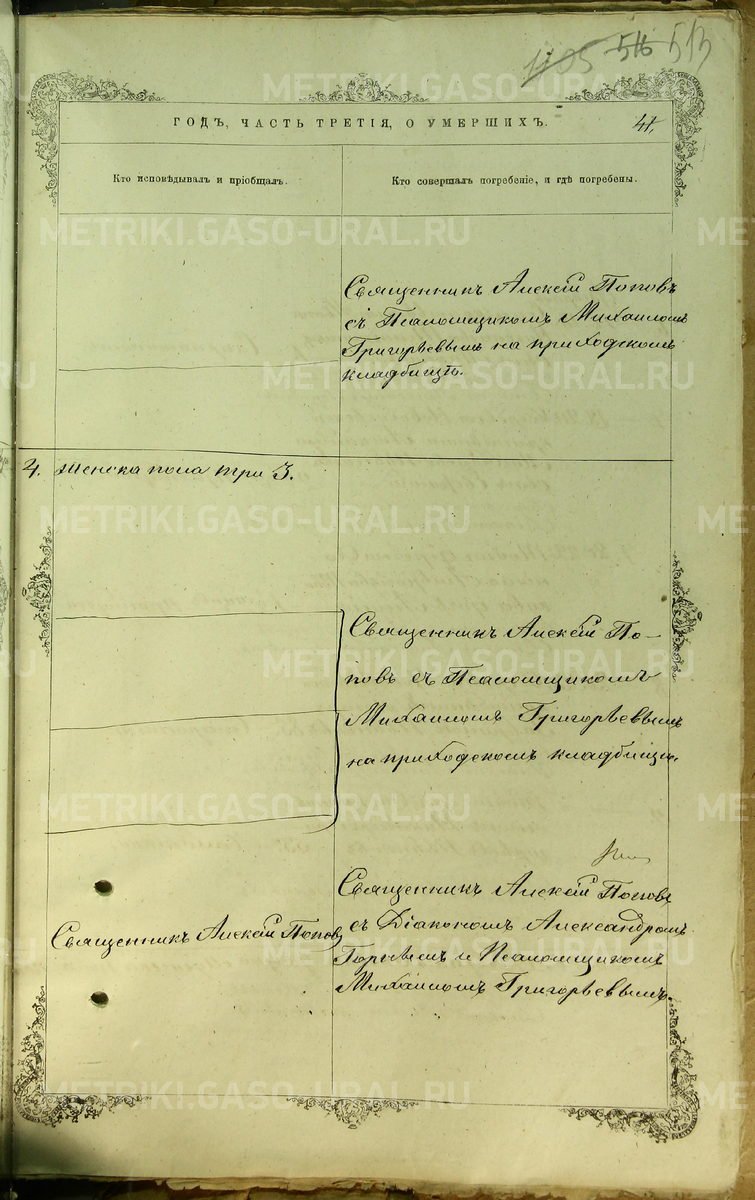 1105 516 513
ГОДЪ, ЧАСТЬ ТРЕТІЯ, О УМЕРШИХЪ.
41.
Кто исповѣдывалъ и пріобщалъ.
Кто совершалъ погребеніе, и гдѣ погребены.
Священникъ Алексій Поповъ
съ Псаломщикомъ Михаиломъ
Григорьевымъ на приходскомъ
кладбищѣ.
4. женска пола три 3.
Священникъ Алексій По-
повъ съ Псаломщикомъ
Михаиломъ Григорьевымъ
на приходскомъ кладбищѣ.
Священникъ Алексій Поповъ
Священникъ Алексій Поповъ
съ Діакономъ Александромъ
и Псаломщикомъ
Михаиломъ Григорьевымъ.
METRIKI.GASO-URAL.RU